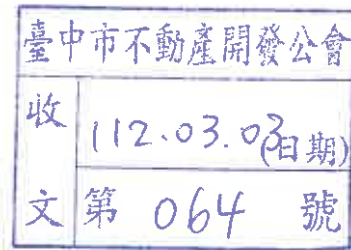 臺中市不動產開發公會
收 112.03.03(日期)
文 第 064 號